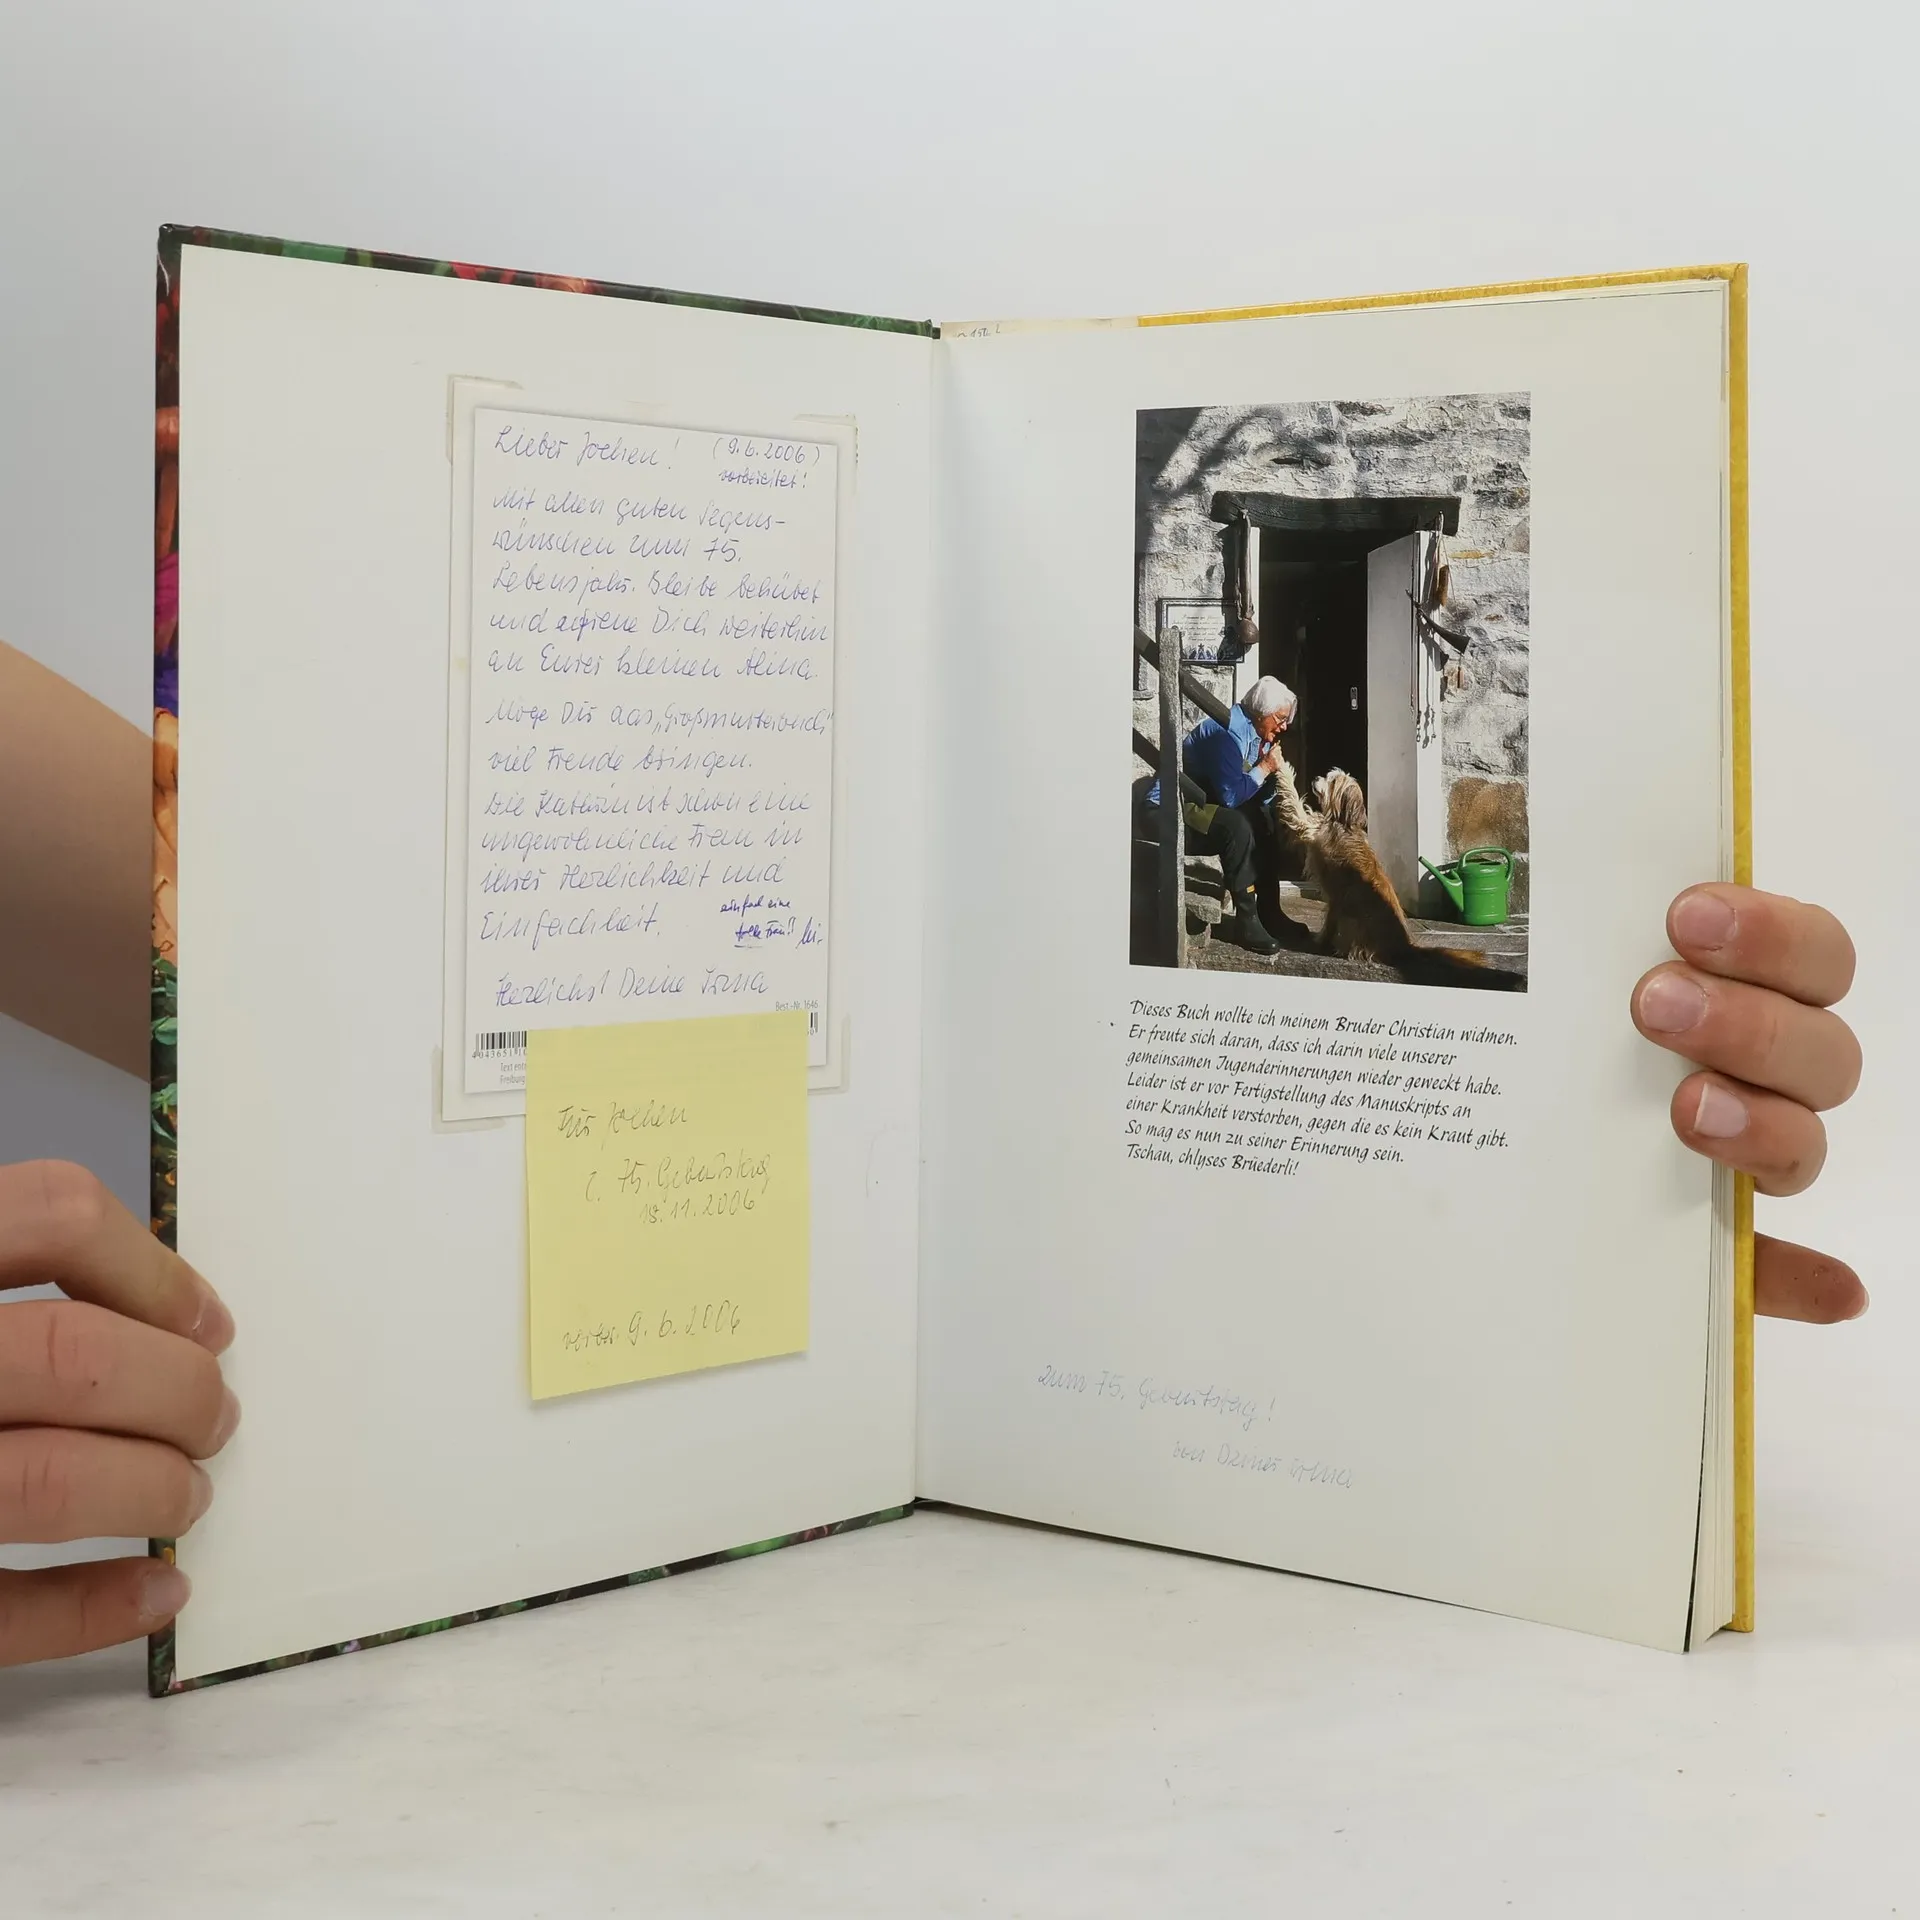 Lieber Jochen! (9.6.2006)
vorbereitet!
Mit allen guten Segens-
wünschen zum 75.
Lebensjahr. Bleibe behütet
und erfreue Dich weiterhin
an Eurer kleinen Alina.
Möge Dir das „Großmutterbuch"
viel Freude bringen.
Die Kathrin ist schon eine
ungewöhnliche Frau in
ihrer Herzlichkeit und
Einfachheit.
einfach eine
tolle Frau!!
Herzlichst Deine Irma
Best.-Nr. 1646
Text
Freiburg
Für Jochen
z. 75. Geburtstag
18.11.2006
vorber. 9.6.2006
Dieses Buch wollte ich meinem Bruder Christian widmen.
Er freute sich daran, dass ich darin viele unserer
gemeinsamen Jugenderinnerungen wieder geweckt habe.
Leider ist er vor Fertigstellung des Manuskripts an
einer Krankheit verstorben, gegen die es kein Kraut gibt.
So mag es nun zu seiner Erinnerung sein.
Tschau, chlyses Brüederli!
zum 75. Geburtstag!
von Deiner Irma